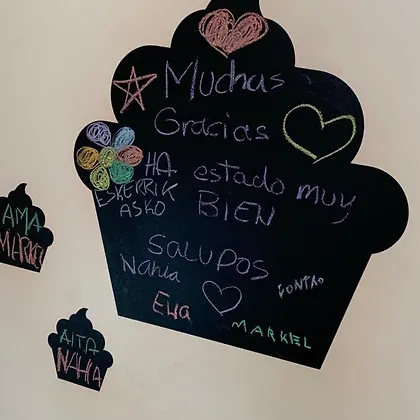 Muchas
Gracias
HA estado muy
ESKERRIK
ASKO
BIEN
SALUDOS
Nahia
Ewa
MARKEL
AMA
MARKEL
AITA
NAHIA